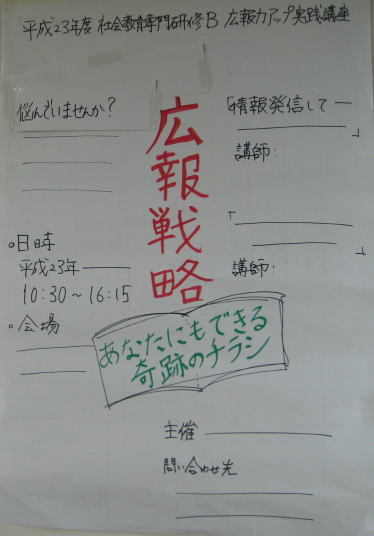 平成23年度 社会教育専門研修B 広報力アップ実践講座
悩んでいませんか?
広報戦略
「情報発信して―
」
講師:
「
」
講師:
○日時
平成23年
10:30～16:15
○会場
あなたにもできる
奇跡のチラシ
主催
問い合わせ先